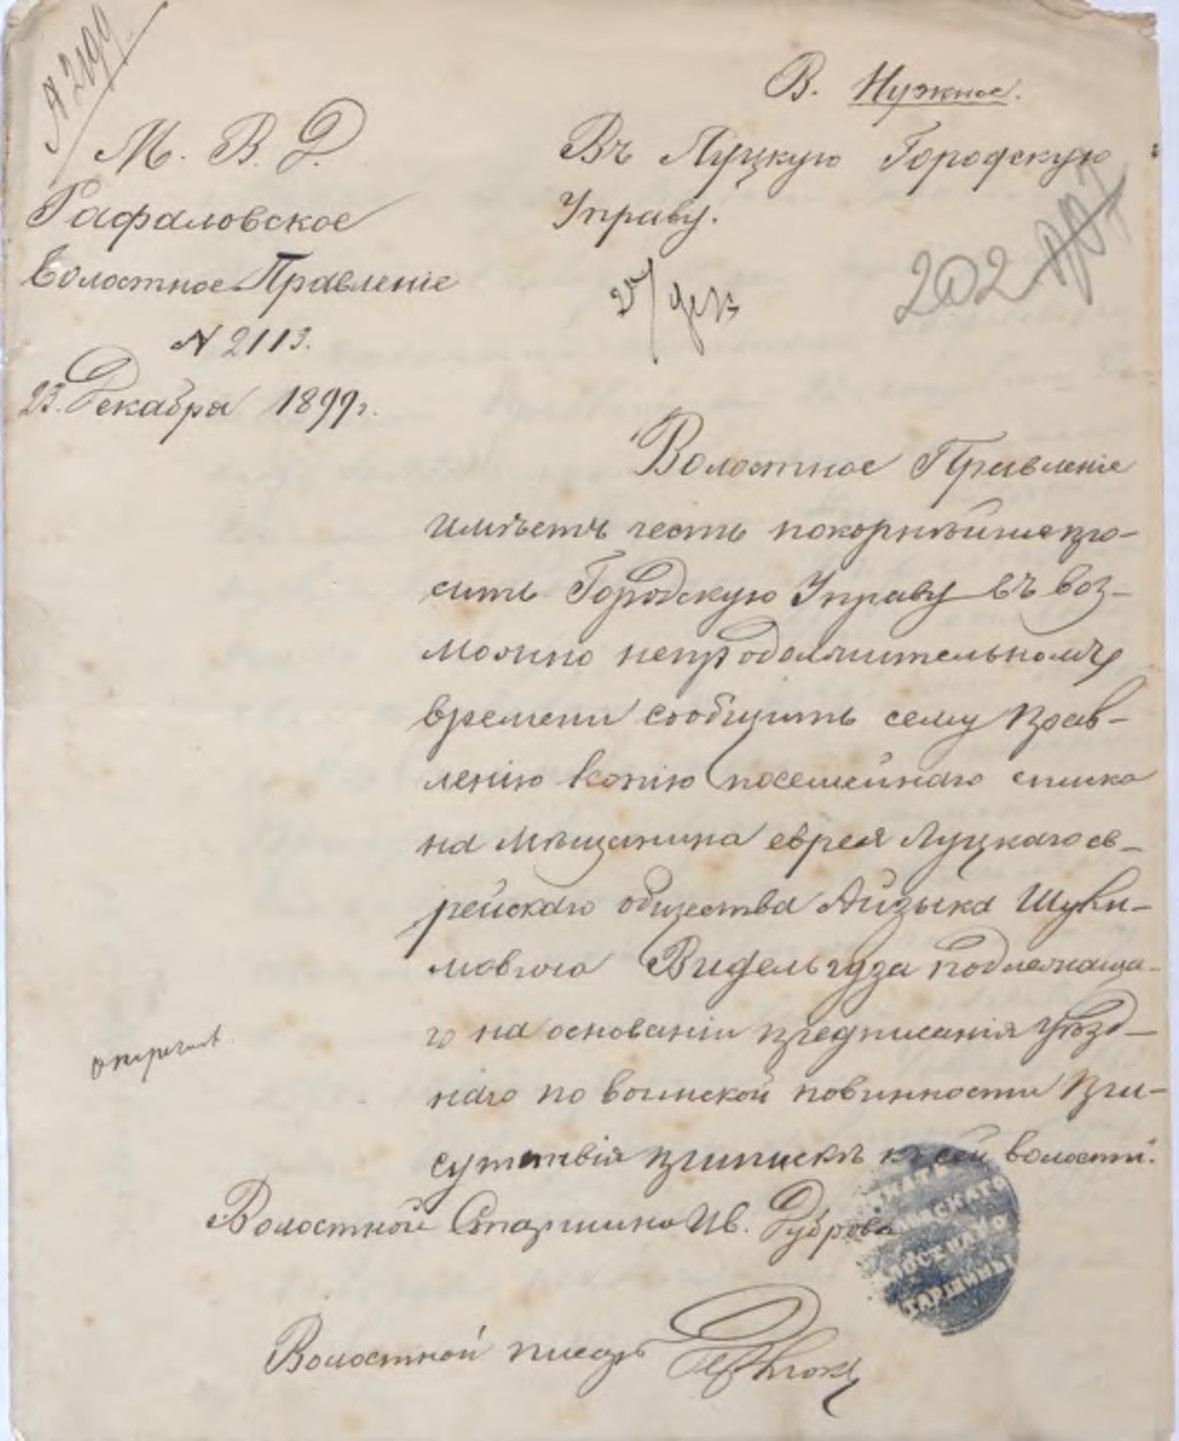 № 2199
В. Нужное.
М. В. Д.
Рафаловское
Волостное Правленіе
№ 2113.
23. Декабря 1899 г.
Въ Луцкую Городскую
Управу.
202
Волостное Правленіе
имѣетъ честь покорнѣйше про-
сить Городскую Управу въ воз-
можно непродолжительномъ
времени сообщить сему Прав-
ленію копію посемейнаго списка
на мѣщанина еврея Луцкаго ев-
рейскаго общества Айзыка
Видельгуза подлежаща-
го на основаніи предписанія Уѣзд-
наго по воинской повинности При-
сутствія припискѣ къ сей волости.
Волостной Старшина Ив.
СТАРШИНЫ
Волостной писарь